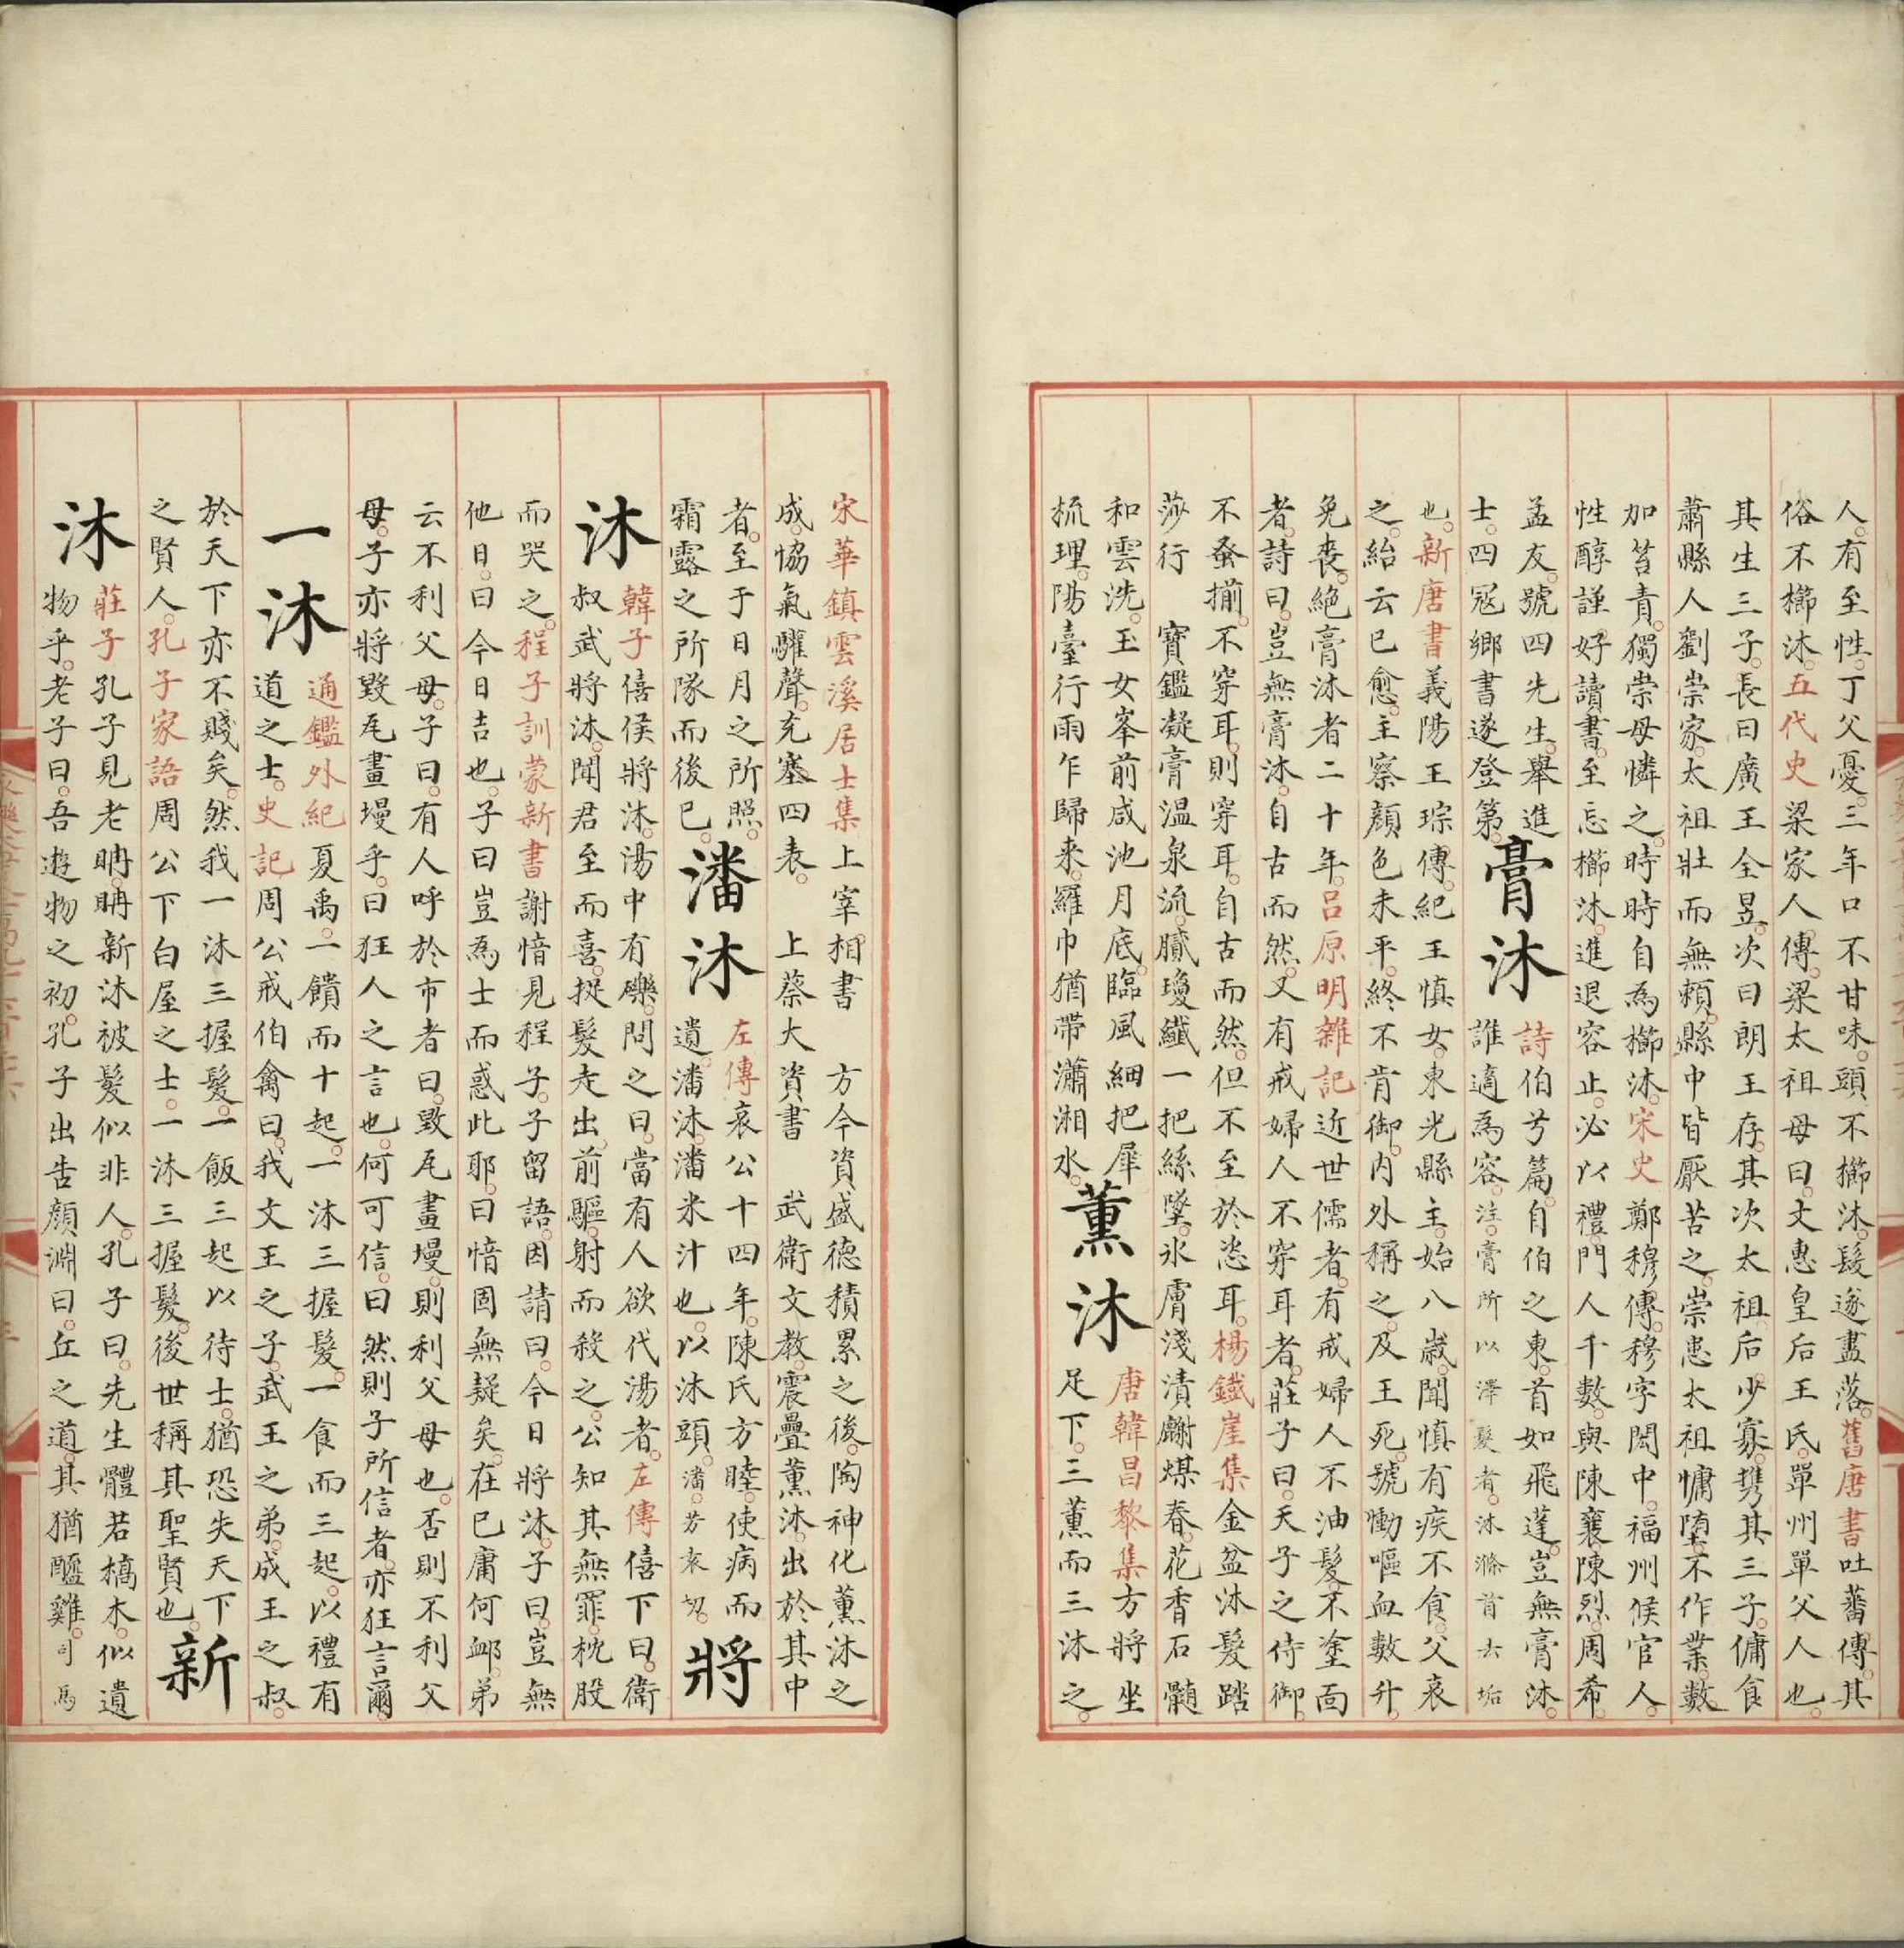 人有至性丁父憂三年口不甘味頭不櫛沐髮遂盡落舊唐書吐蕃傳其
俗不櫛沐五代史梁家人傳梁太祖母曰文惠皇后王氏單州單父人也
其生三子長曰廣王全昱次曰朗王存其次太祖后少寡携其三子傭食
蕭縣人劉崇家太祖壯而無賴縣中皆厭苦之崇患太祖慵墮不作業數
加笞責獨崇母憐之時時自為櫛沐宋史鄭穆傳穆字閎中福州候官人
性醇謹好讀書至忘櫛沐進退容止必以禮門人千數與陳襄陳烈周希
孟友號四先生舉進
士四冠鄉書遂登第
膏沐
詩伯兮篇自伯之東首如飛蓬豈無膏沐
誰適為容注膏所以澤髮者沐滌首去垢
也新唐書義陽王琮傳紀王慎女東光縣主始八歲聞慎有疾不食父哀
之紿云已愈主察顏色未平終不肯御內外稱之及王死號慟嘔血數升
免喪絕膏沐者二十年呂原明雜記近世儒者有戒婦人不油髮不塗面
者詩曰豈無膏沐自古而然又有戒婦人不穿耳者莊子曰天子之侍御
不蚤揃不穿耳則穿耳自古而然但不至於恣耳楊鐵崖集金盆沐髮踏
莎行 寶鑑凝膏溫泉流膩瓊纖一把絲墜氷膚淺漬麝煤春花香石髓
和雲洗玉女峯前咸池月底臨風細把犀
梳理陽臺行雨乍歸来羅巾猶帶瀟湘水
薰沐
唐韓昌黎集方將坐
足下三薰而三沐之
宋華鎮雲溪居士集上宰相書 方今資盛德積累之後陶神化薰沐之
成協氣驩聲充塞四表 上蔡大資書 武衛文教震疊薰沐出於其中
者至于日月之所照
霜露之所隊而後已
潘沐
左傳哀公十四年陳氏方睦使病而
遺潘沐潘米汁也以沐頭潘芳袁切
將
沐
韓子僖侯將沐湯中有礫問之曰當有人欲代湯者左傳僖下曰衛
叔武將沐聞君至而喜捉髮走出前驅射而殺之公知其無罪枕股
而哭之程子訓蒙新書謝愔見程子子留語因請曰今日將沐子曰豈無
他日曰今日吉也子曰豈為士而惑此耶曰愔固無疑矣在已庸何卹弟
云不利父母子曰有人呼於市者曰毀瓦畫墁則利父母也否則不利父
母子亦將毀瓦畫墁乎曰狂人之言也何可信曰然則子所信者亦狂言爾
一沐
通鑑外紀夏禹一饋而十起一沐三握髮一食而三起以禮有
道之士史記周公戒伯禽曰我文王之子武王之弟成王之叔
於天下亦不賤矣然我一沐三握髮一飯三起以待士猶恐失天下
之賢人孔子家語周公下白屋之士一沐三握髮後世稱其聖賢也
新
沐
莊子孔子見老聃聃新沐被髮似非人孔子曰先生體若槁木似遺
物乎老子曰吾遊物之初孔子出告顏淵曰丘之道其猶醯雞司馬